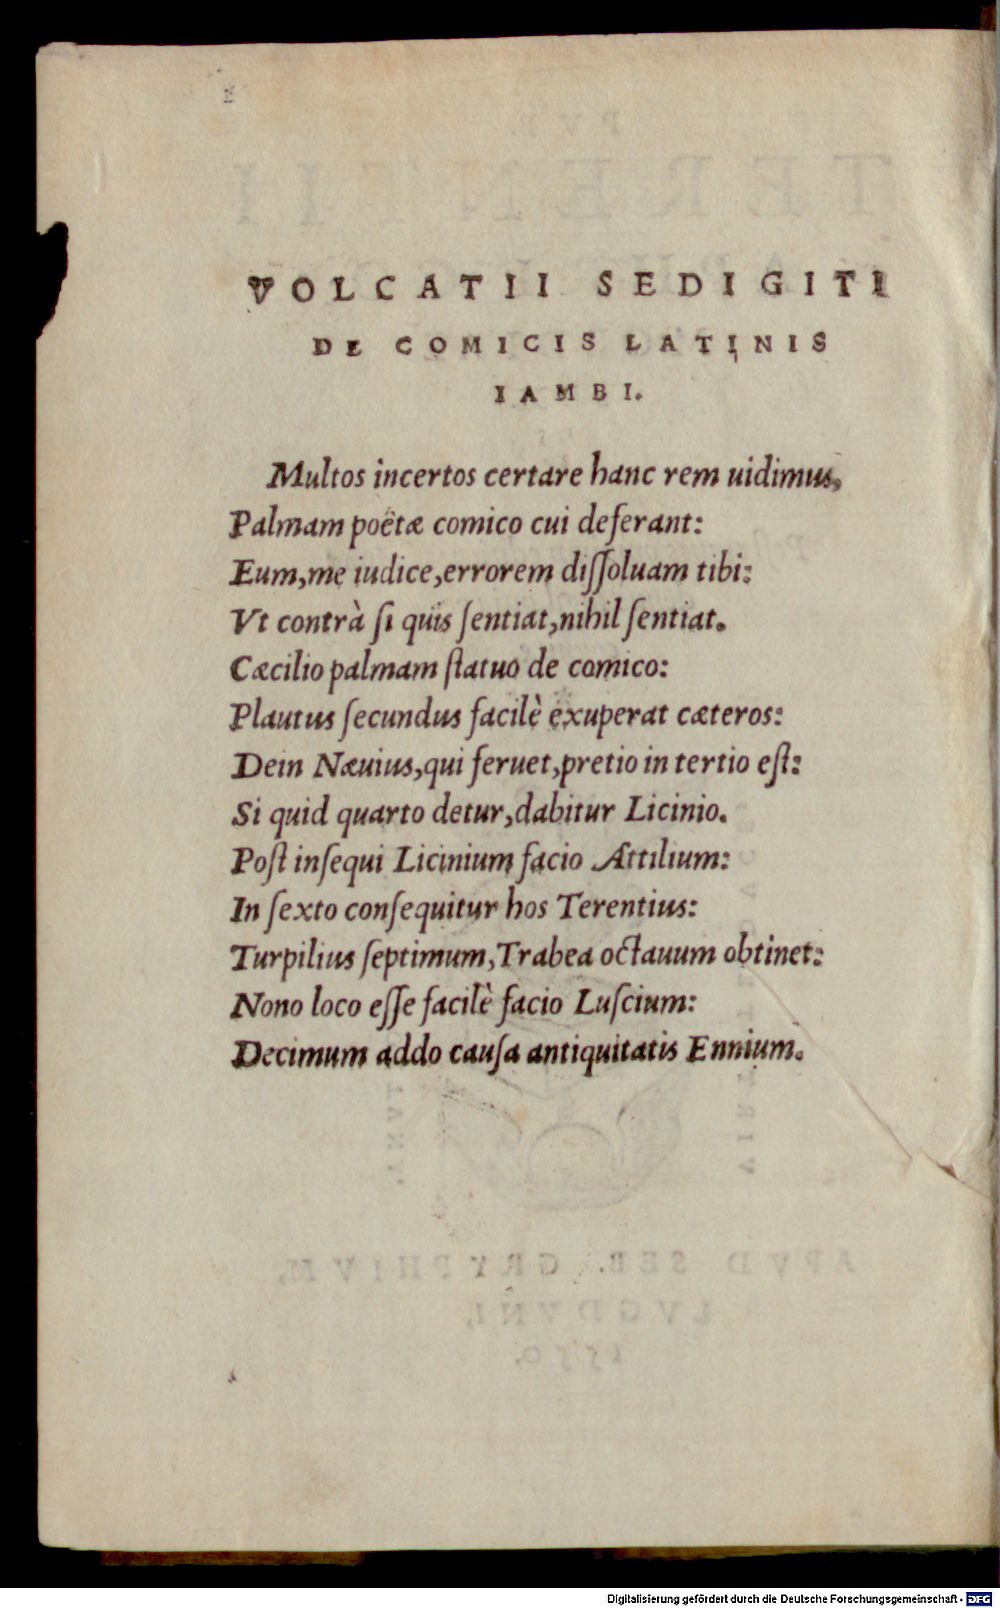 VOLCATII SEDIGITI
DE COMICIS LATINIS
IAMBI.
Multos incertos certare hanc rem uidimus,
Palmam poëtæ comico cui deferant:
Eum,me iudice,errorem diſſoluam tibi:
Vt contrà ſi quis ſentiat,nihil ſentiat.
Cæcilio palmam ſtatuo de comico:
Plautus ſecundus facilè exuperat cæteros:
Dein Næuius,qui feruet,pretio in tertio eſt:
Si quid quarto detur,dabitur Licinio.
Poſt inſequi Licinium facio Attilium:
In ſexto conſequitur hos Terentius:
Turpilius ſeptimum,Trabea octauum obtinet:
Nono loco eſſe facilè facio Luſcium:
Decimum addo cauſa antiquitatis Ennium.
APVD SEB. GRYPHIVM,
LVGDVNI,
1550.
Digitalisierung gefördert durch die Deutsche Forschungsgemeinschaft - DFG